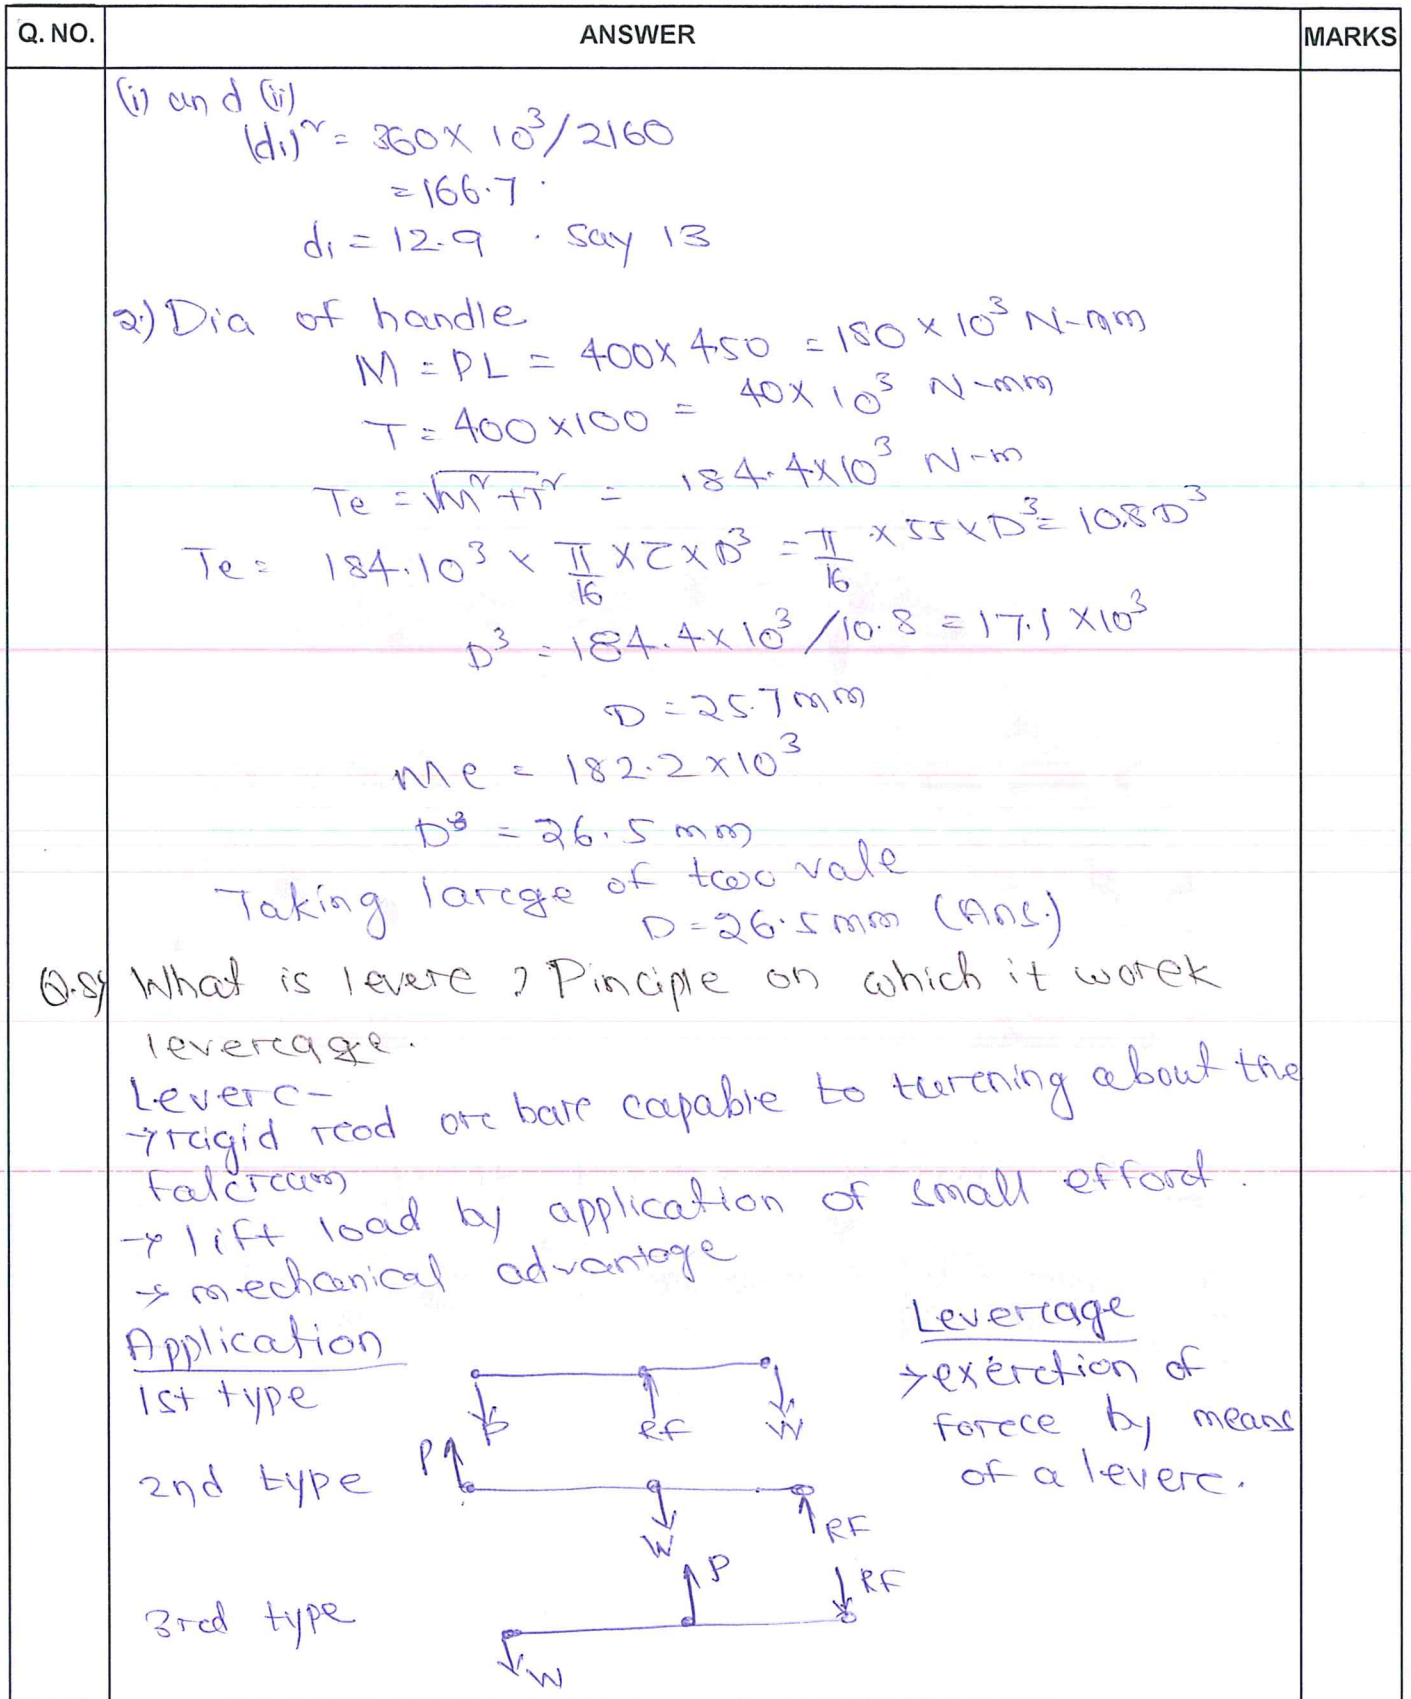 Q. NO. ANSWER MARKS
(i) and (ii)
(d1)² = 360 x 10³/2160
= 166.7
d1 = 12.9 . Say 13
2) Dia of handle
M = PL = 400 x 450 = 180 x 10³ N-mm
T = 400 x 100 = 40 x 10³ N-mm
Te = √M² + T² = 184.4 x 10³ N-m
Te = 184.10³ x π/16 x τ x D³ = π/16 x 55 x D³ = 10.8 D³
D³ = 184.4 x 10³ /10.8 = 17.1 x 10³
D = 25.7 mm
Me = 182.2 x 10³
D³ = 26.5 mm
Taking larcge of two vale
D = 26.5 mm (Ans.)
Q.8) What is levere ? Pinciple on which it worek
levercage.
Leverc -
→ rcigid rcod orc barc capable to turcning about the
falcrcum
→ lift load by application of small efford.
→ mechanical advantage
Application
1st type
P RF W
2nd type
P W RF
3rcd type
W P RF
Levercage
→ exerction of
forcce by means
of a leverc.